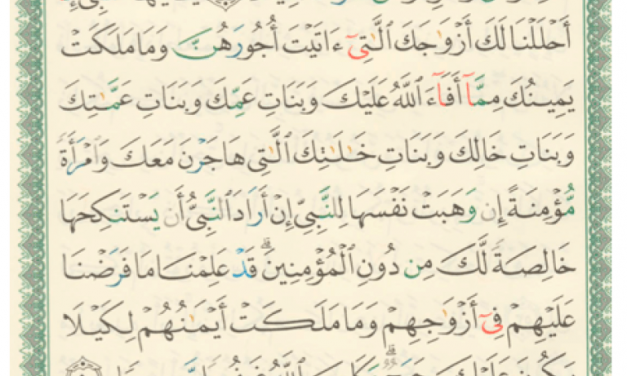 أَحْلَلْنَا لَكَ أَزْوَٰجَكَ ٱلَّٰتِىٓ ءَاتَيْتَ أُجُورَهُنَّ وَمَا مَلَكَتْ
يَمِينُكَ مِمَّآ أَفَآءَ ٱللَّهُ عَلَيْكَ وَبَنَاتِ عَمِّكَ وَبَنَاتِ عَمَّٰتِكَ
وَبَنَاتِ خَالِكَ وَبَنَاتِ خَٰلَٰتِكَ ٱلَّٰتِى هَاجَرْنَ مَعَكَ وَٱمْرَأَةً
مُّؤْمِنَةً إِن وَهَبَتْ نَفْسَهَا لِلنَّبِىِّ إِنْ أَرَادَ ٱلنَّبِىُّ أَن يَسْتَنكِحَهَا
خَالِصَةً لَّكَ مِن دُونِ ٱلْمُؤْمِنِينَ ۗ قَدْ عَلِمْنَا مَا فَرَضْنَا
عَلَيْهِمْ فِىٓ أَزْوَٰجِهِمْ وَمَا مَلَكَتْ أَيْمَٰنُهُمْ لِكَيْلَا